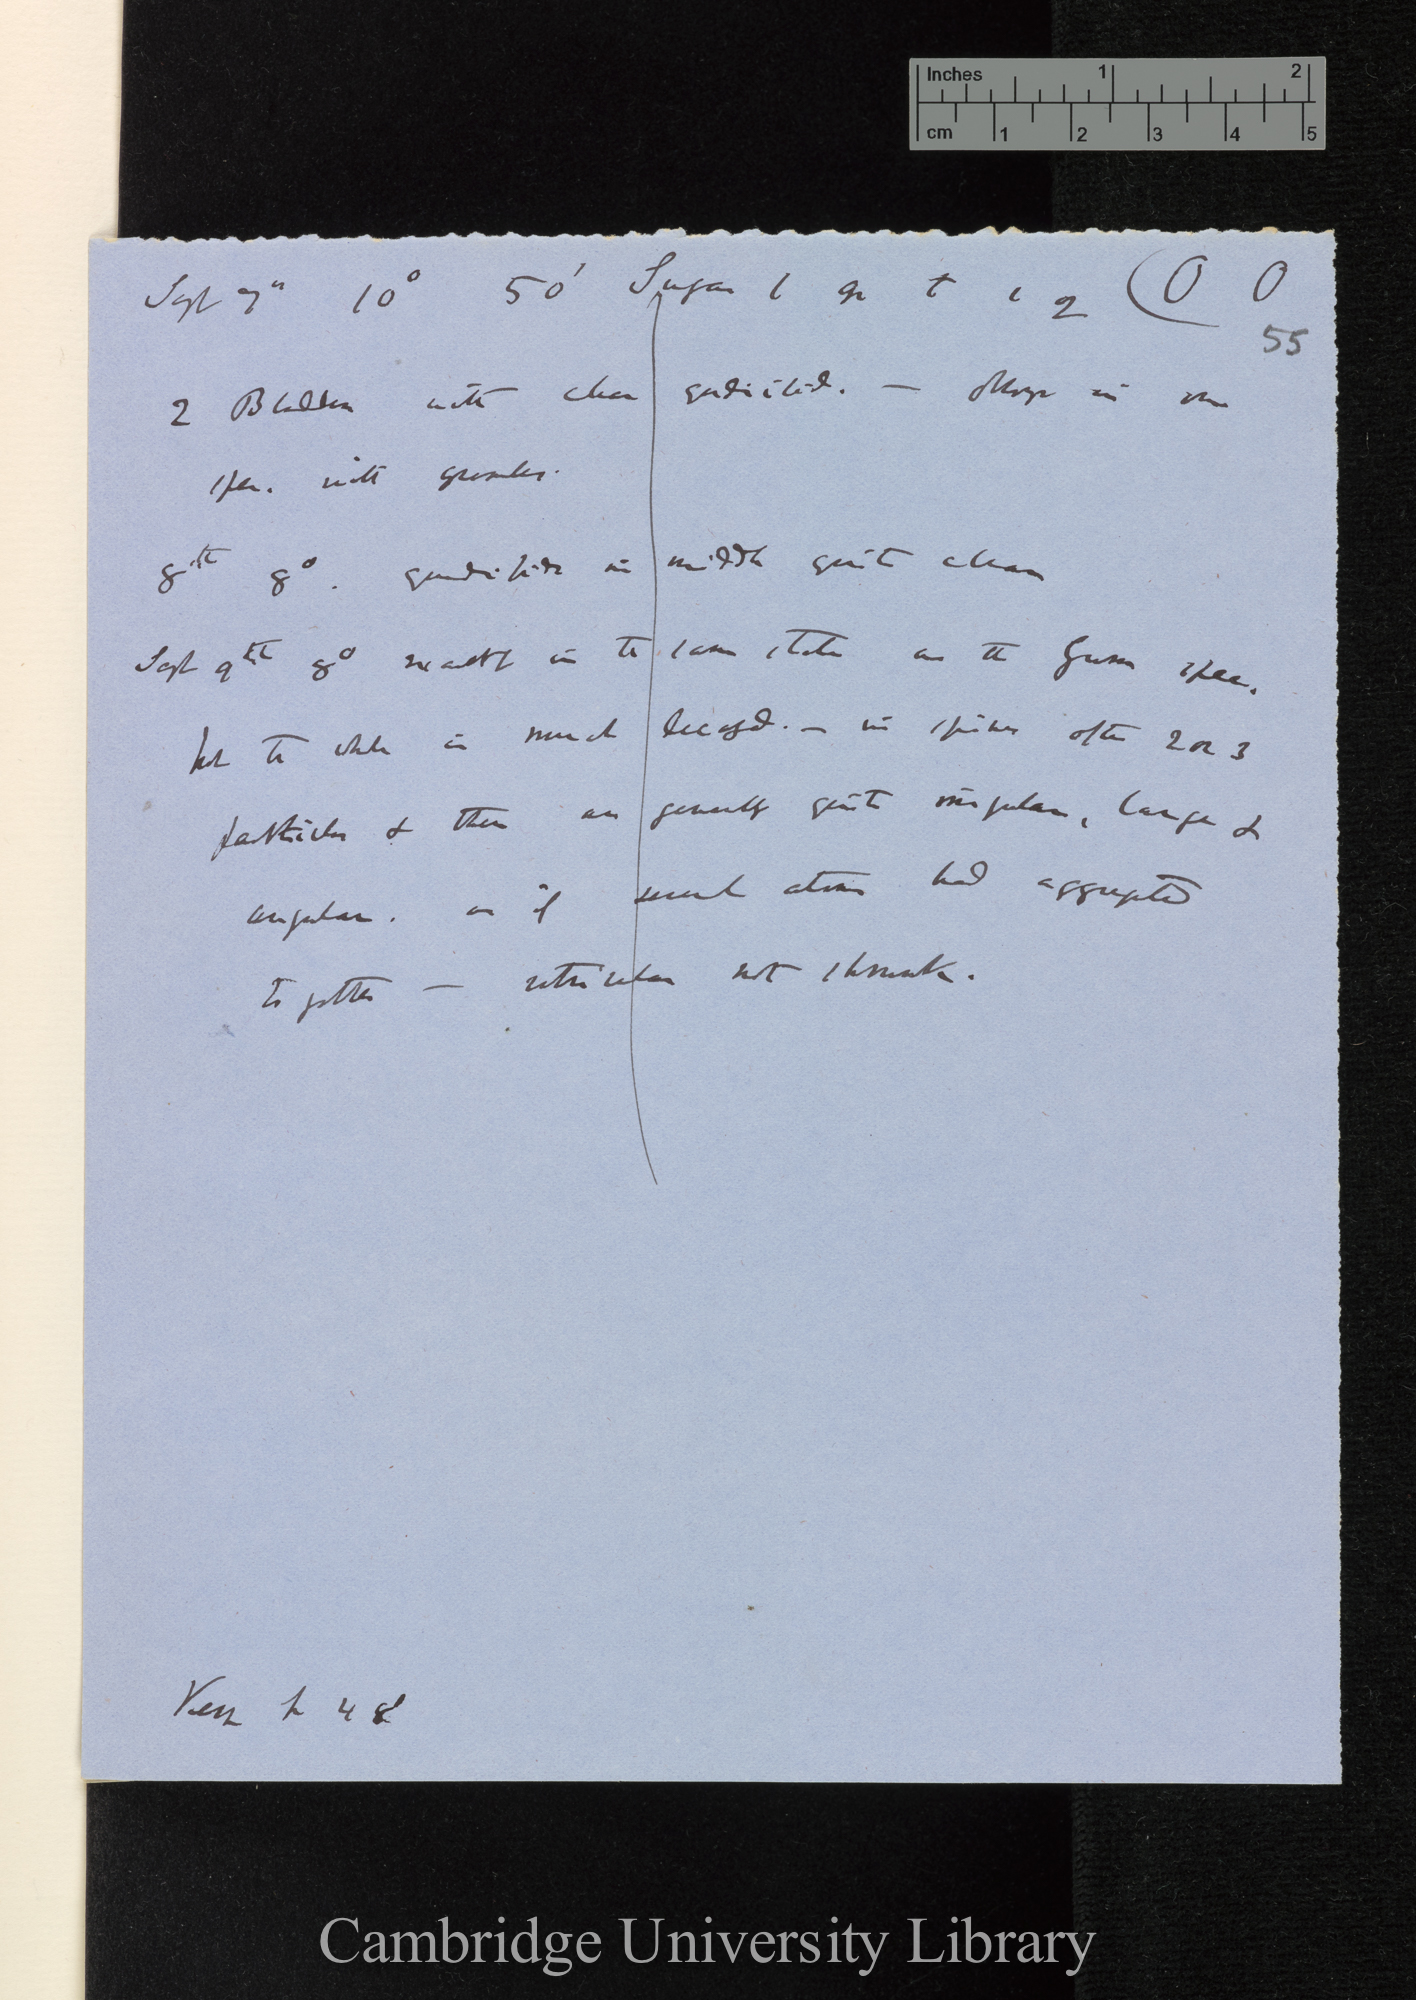 Inches 1 2
cm 1 2 3 4 5
Sept 7th 10° 50' Sugar 1 gr t 1 oz (O O
55
2 Bladders with clean quadrifid. — in one
spec. with granules.
8th 8°. quadrifids in middle quite clean
Sept 9th 8° exactly in the same state as the Gum spec.
but the whole is much decayed. — in spines often 2 or 3
particles & these are generally quite irregular, large &
angular. as if several atoms had aggregated
together — utricular not shrunk.
Very h 48
Cambridge University Library